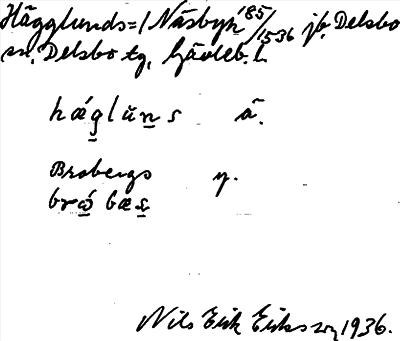 Hägglunds=/ Näsbyn 185/1536 jb. Delsbo
sn. Delsbo tg. Gävleb. L
hǽg̲lŭn̲s ä.
Brobergs y.
brώ̲bæs̲
Nils Erik Eriksson 1936.